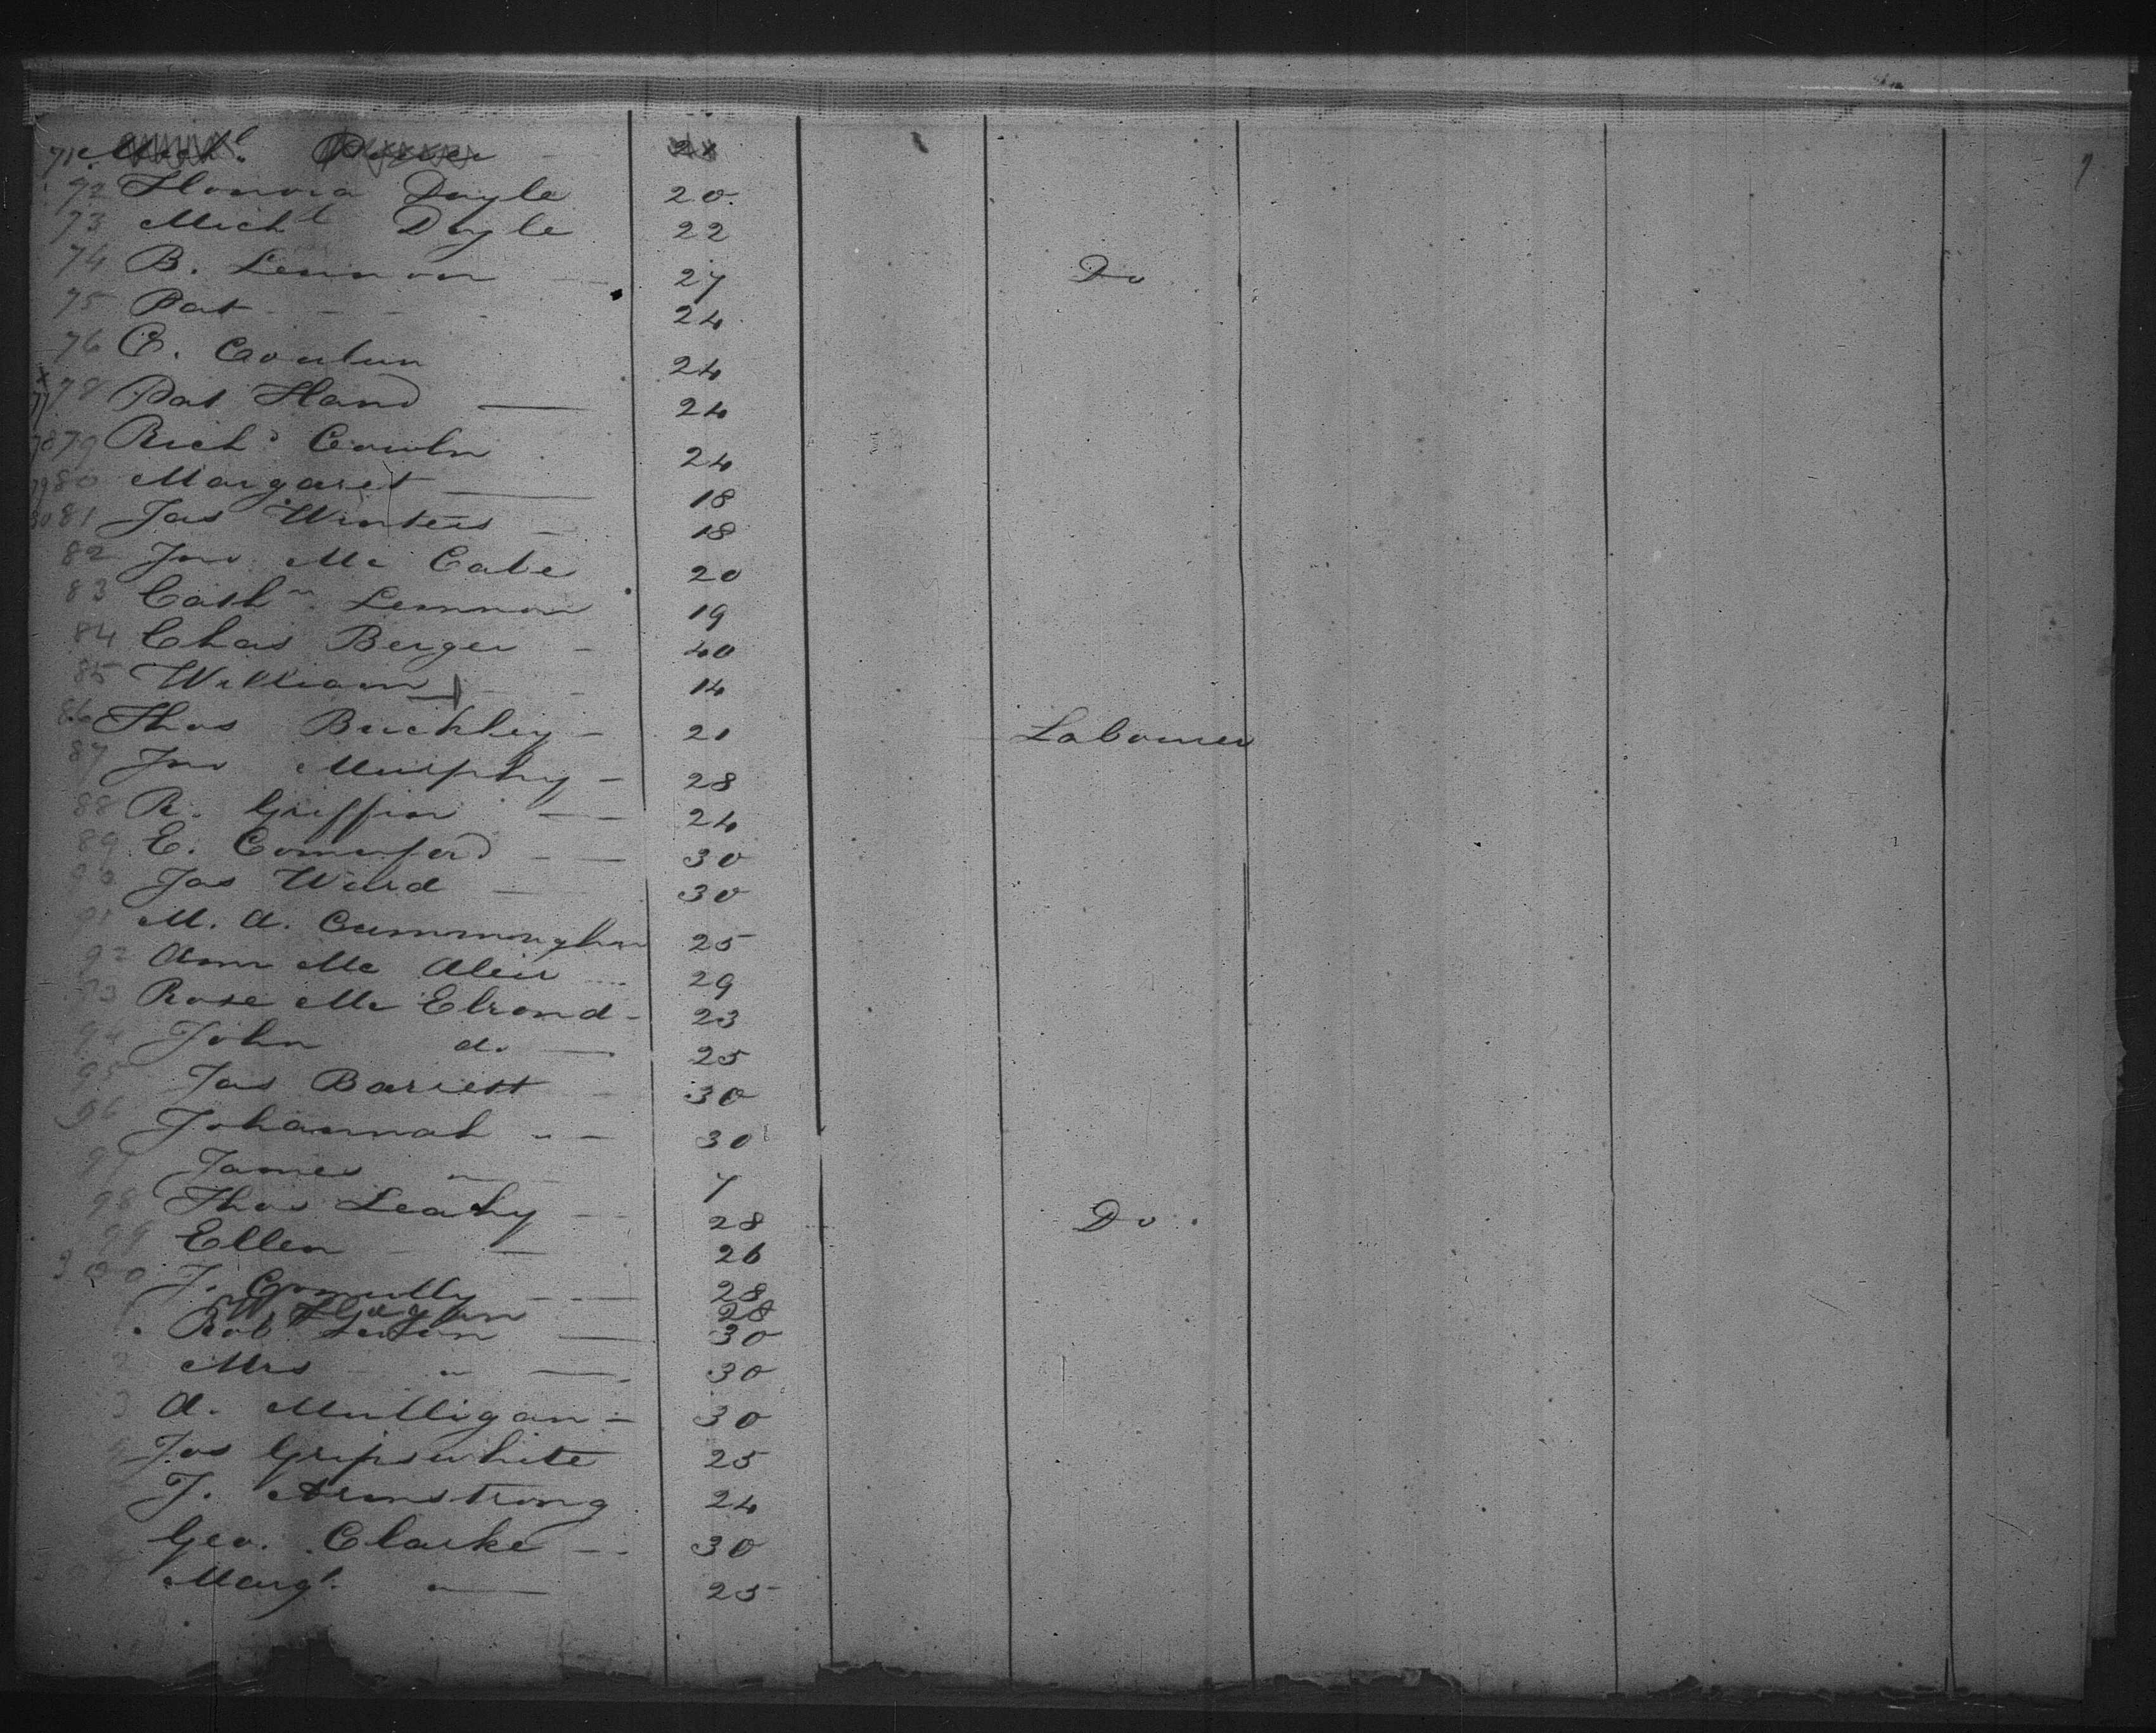 71 Mich.l Power 21
72 Honora Doyle 20
73 Michl Doyle 22
74 B. Lennon — 27 Do
75 Pat - - - 24
76 C. 24
x 77 78 Pat Hand — 24
78 79 Richd 24
79 80 Margaret — 18
80 81 Jas Winters - 18
82 Jno Mc Cabe 20
83 Cathn. Lennon 19
84 Chas Berger - 40
85 William - - 14
86 Thos Buckley - 21 Labourer
87 Jno Murphy - 28
88 R. Griffin — 24
89 E. Comerford - — 30
90 Jas Ward — 30
91 M. A. Cunningham 25
92 Ann Mc Aleer 29
93 Rose Mc Elrond - 23
94 John do — 25
95 Jas Barrett 30
96 Johannah " - 30
97 James " 7
98 Thos Leahy - - 28 Do.
99 Ellen - — 26
300 J. Connolly - — 28
Hogan 28
Rob. — 30
2 Mrs " — 30
3 A. Mulligan - 30
Jos Gripswhite 25
J. Armstrong 24
Geo. Clarke — 30
Margt. " — 25
7